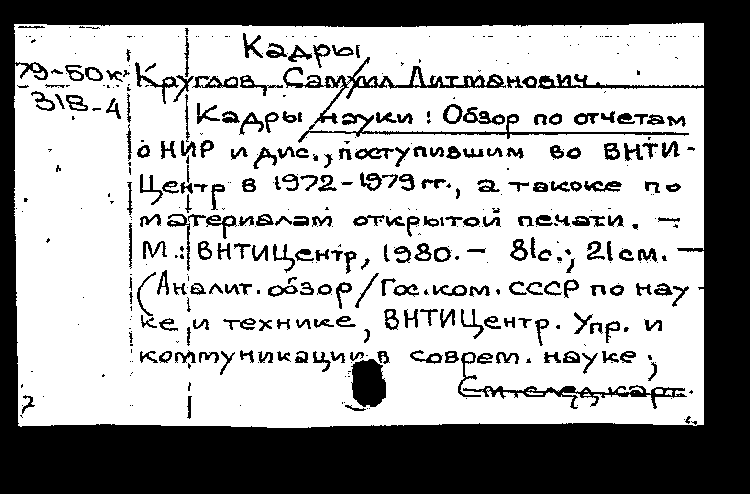 Кадры
79-50к Круглов, Самуил Литманович.
318-4
Кадры науки : Обзор по отчетам
о НИР и дис., поступившим во ВНТИ-
Центр в 1972-1979 гг., а также по
материалам открытой печати. —
М.: ВНТИЦентр, 1980. — 81с.; 21см. —
(Аналит. обзор / Гос. ком. СССР по нау-
ке и технике, ВНТИЦентр. Упр. и
коммуникации в соврем. науке;
См. след. карт.